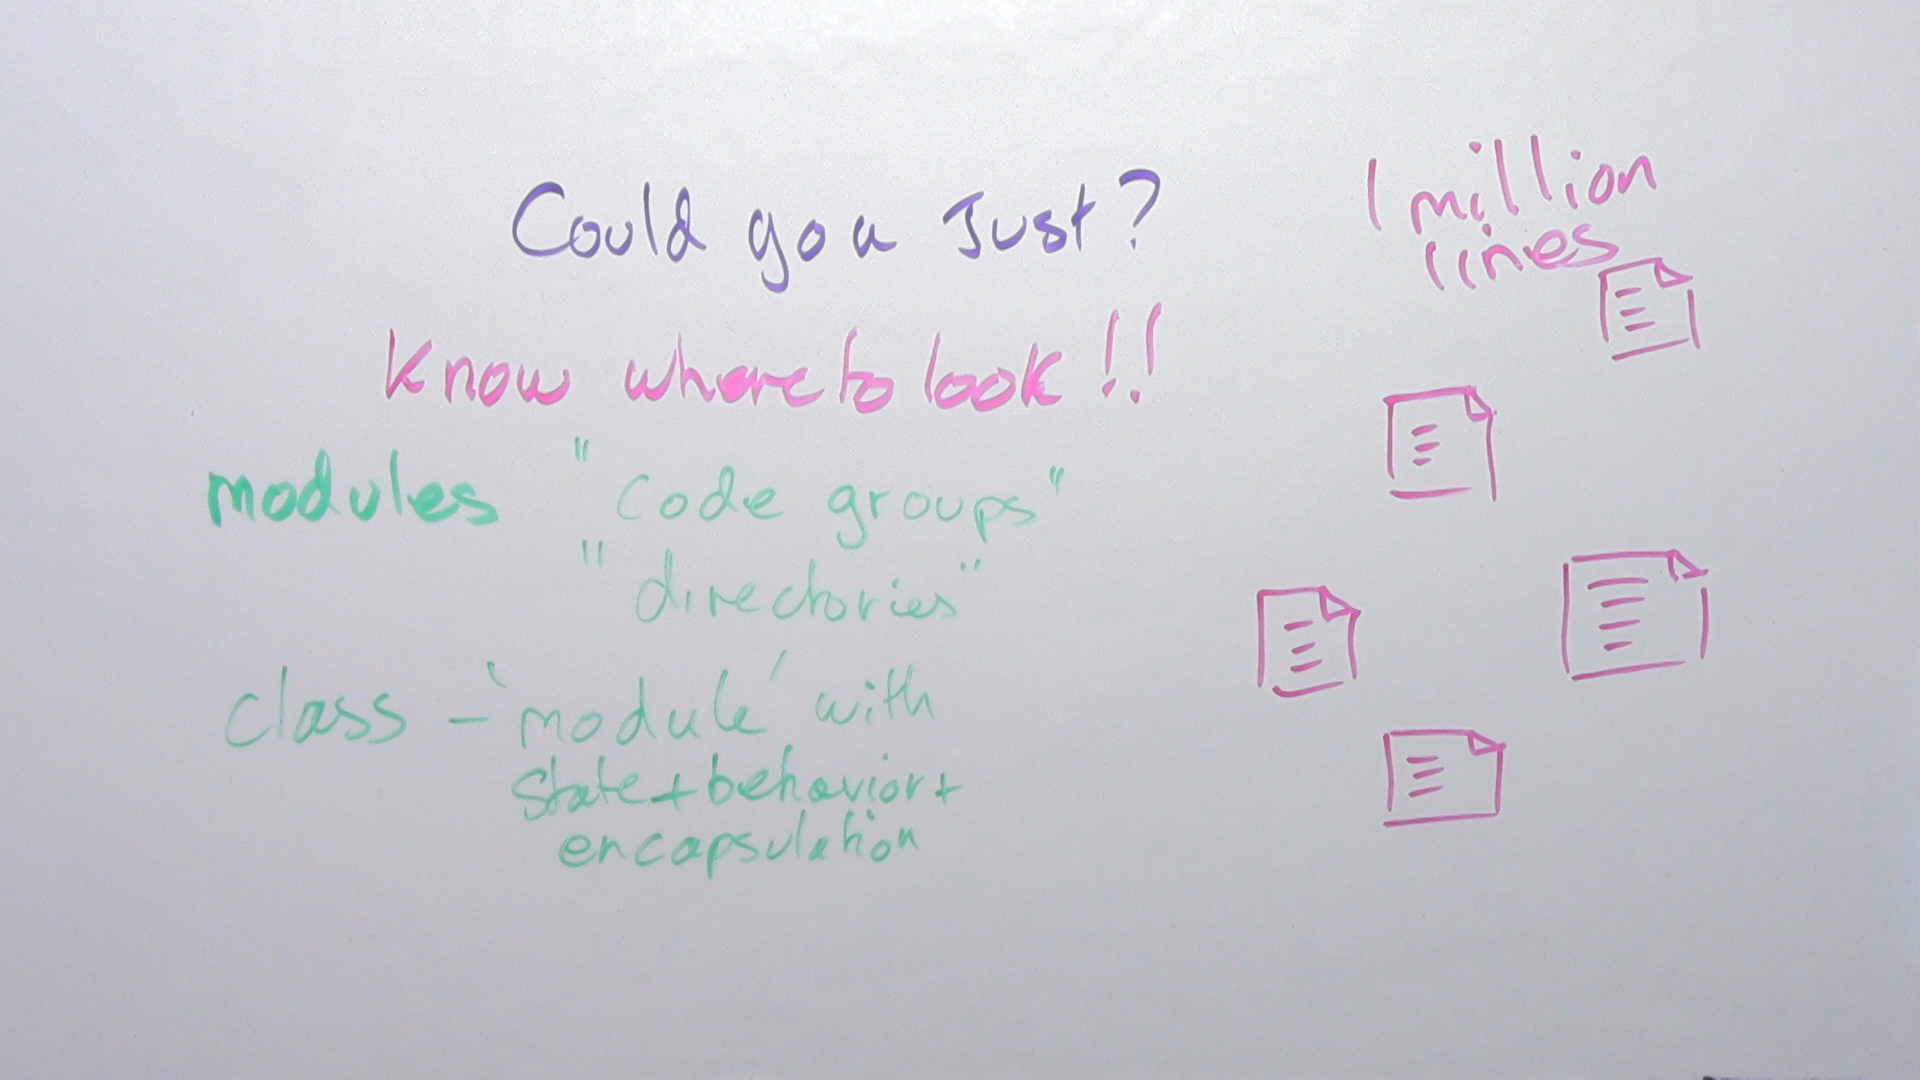 Could you Just?
Know where to look!!
modules "code groups"
"directories"
class - 'module' with
state + behavior +
encapsulation
1 million
lines